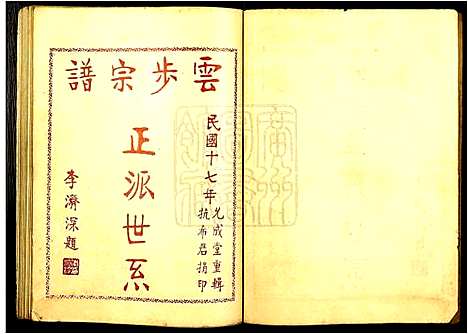 雲步宗譜
民國十七年
允成堂重輯
抗希君捐印
正派世系
李濟深題